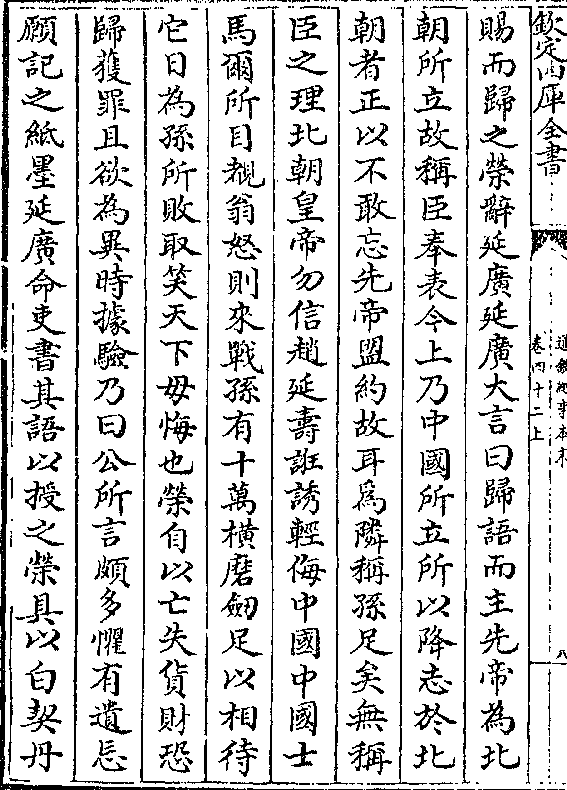 欽定四庫全書
通鑑紀事本末
卷四十二上
八
賜而歸之榮辭延廣延廣大言曰歸語而主先帝為北
朝所立故稱臣奉表今上乃中國所立所以降志於北
朝者正以不敢忘先帝盟約故耳為隣稱孫足矣無稱
臣之理北朝皇帝勿信趙延壽誑誘輕侮中國中國士
馬爾所目覩翁怒則來戰孫有十萬橫磨劒足以相待
它日為孫所敗取笑天下毋悔也榮自以亡失貨財恐
歸獲罪且欲為異時據驗乃曰公所言頗多懼有遺忘
願記之紙墨延廣命吏書其語以授之榮具以白契丹